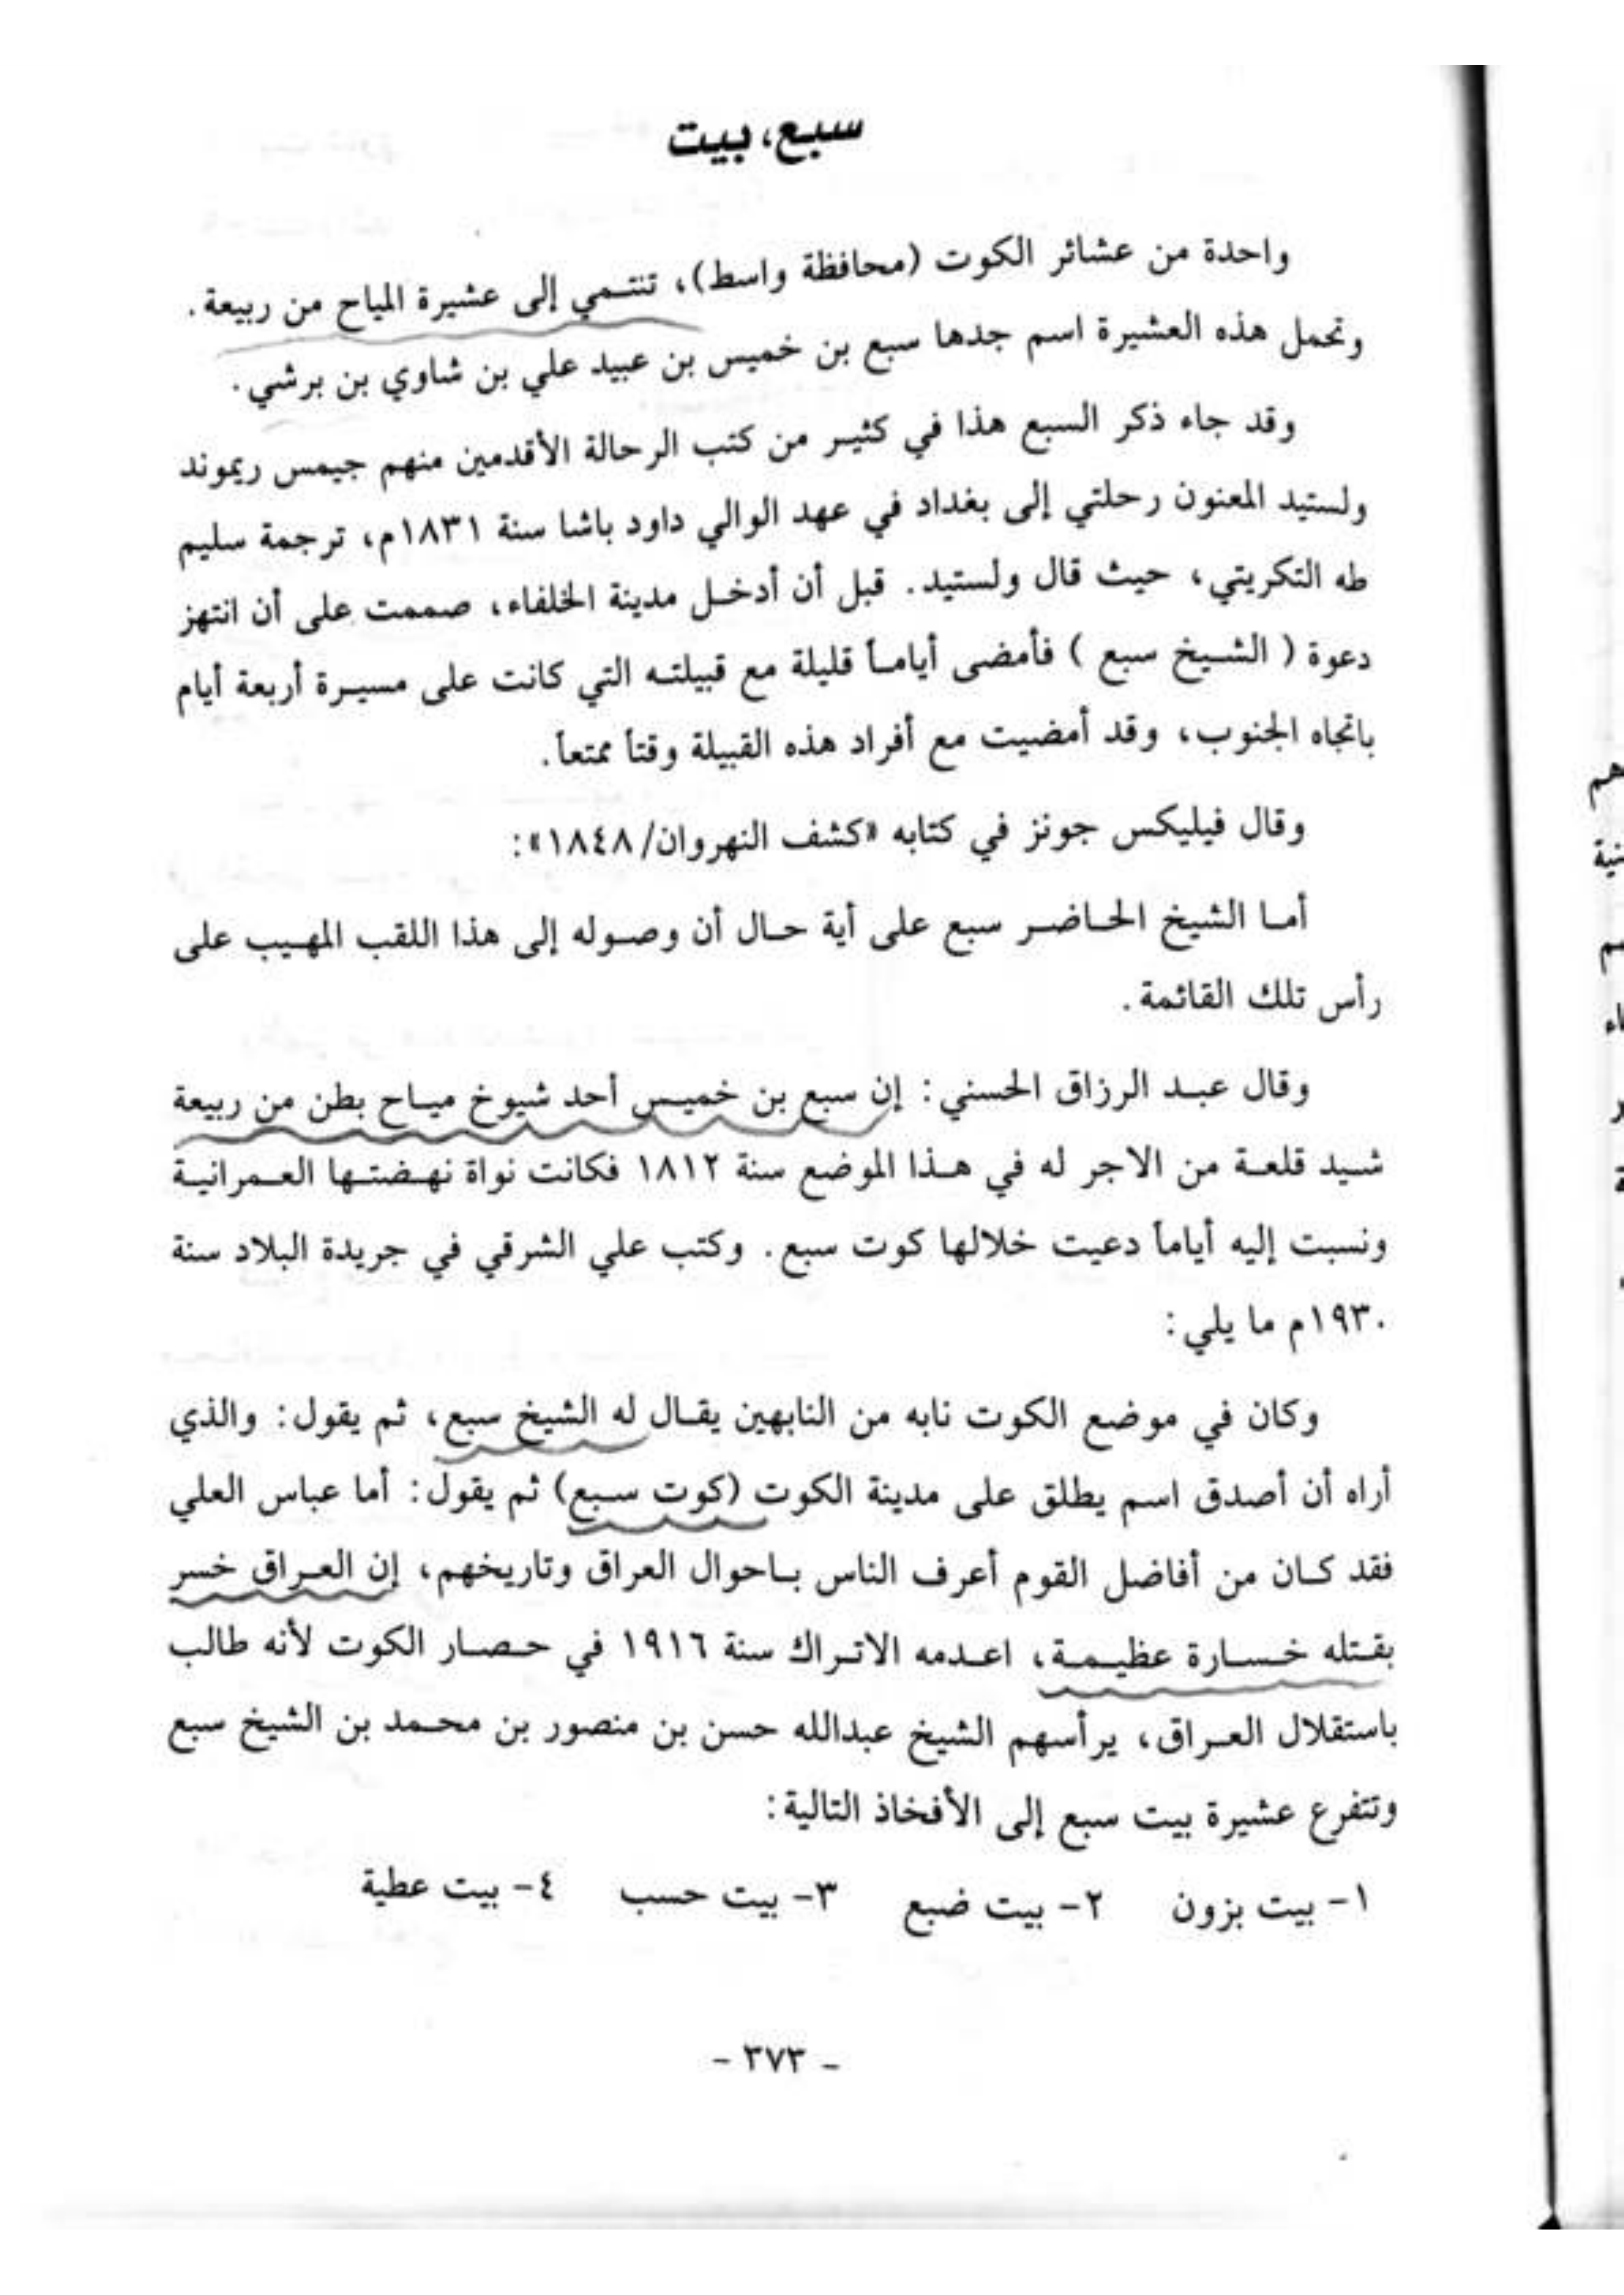 سبع، بيت
واحدة من عشائر الكوت (محافظة واسط)، تنتمي إلى عشيرة المياح من ربيعة.
وتحمل هذه العشيرة اسم جدها سبع بن خميس بن عبيد علي بن شاوي بن برشي.
وقد جاء ذكر السبع هذا في كثير من كتب الرحالة الأقدمين منهم جيمس ريموند
ولستيد المعنون رحلتي إلى بغداد في عهد الوالي داود باشا سنة ١٨٣١م، ترجمة سليم
طه التكريتي، حيث قال ولستيد. قبل أن أدخل مدينة الخلفاء، صممت على أن انتهز
دعوة (الشيخ سبع) فأمضى أياماً قليلة مع قبيلته التي كانت على مسيرة أربعة أيام
باتجاه الجنوب، وقد أمضيت مع أفراد هذه القبيلة وقتاً ممتعاً.
وقال فيليكس جونز في كتابه «كشف النهروان/١٨٤٨»:
أما الشيخ الحاضر سبع على أية حال أن وصوله إلى هذا اللقب المهيب على
رأس تلك القائمة.
وقال عبد الرزاق الحسني: إن سبع بن خميس أحد شيوخ مياح بطن من ربيعة
شيد قلعة من الاجر له في هذا الموضع سنة ١٨١٢ فكانت نواة نهضتها العمرانية
ونسبت إليه أياماً دعيت خلالها كوت سبع. وكتب علي الشرقي في جريدة البلاد سنة
١٩٣٠م ما يلي:
وكان في موضع الكوت نابه من النابهين يقال له الشيخ سبع، ثم يقول: والذي
أراه أن أصدق اسم يطلق على مدينة الكوت (كوت سبع) ثم يقول: أما عباس العلي
فقد كان من أفاضل القوم أعرف الناس باحوال العراق وتاريخهم، إن العراق خسر
بقتله خسارة عظيمة، اعدمه الاتراك سنة ١٩١٦ في حصار الكوت لأنه طالب
باستقلال العراق، يرأسهم الشيخ عبدالله حسن بن منصور بن محمد بن الشيخ سبع
وتتفرع عشيرة بيت سبع إلى الأفخاذ التالية:
١- بيت بزون ٢- بيت ضبع ٣- بيت حسب ٤- بيت عطية
- ٣٧٣ -